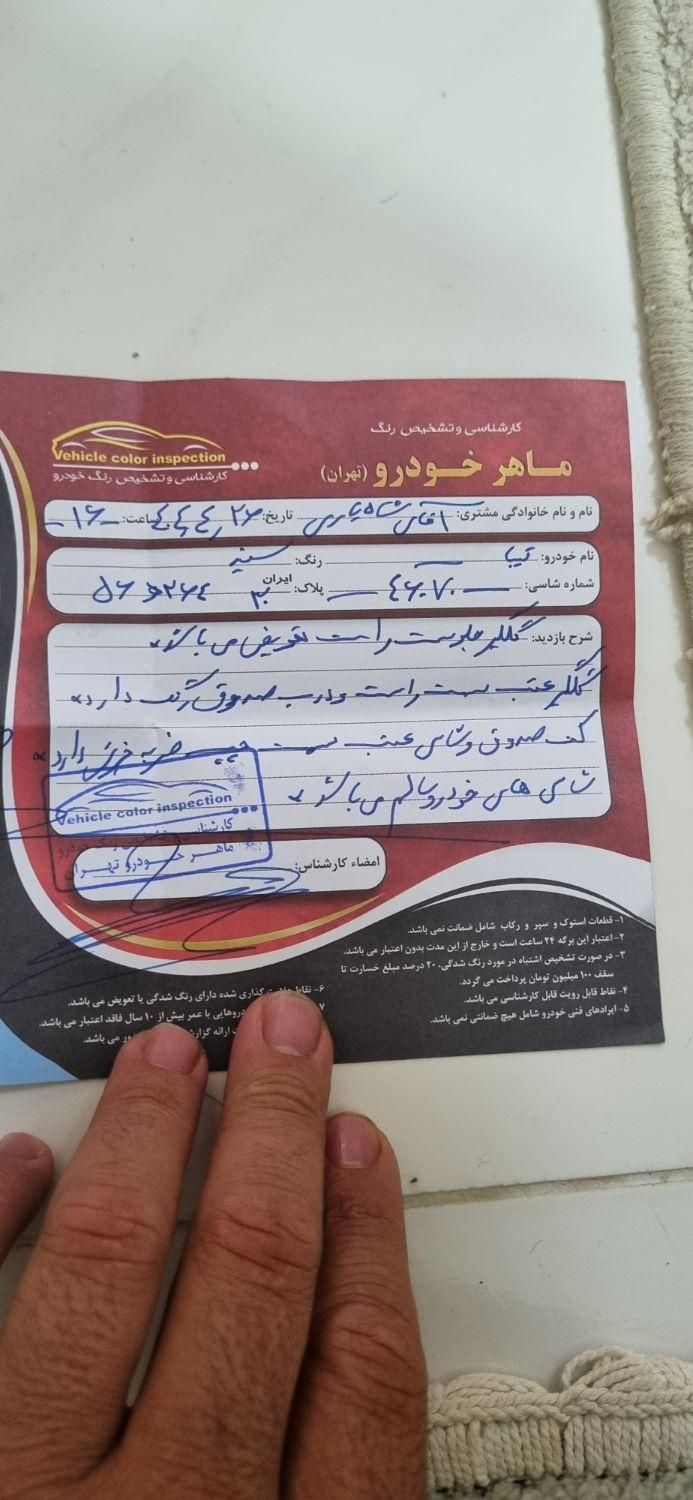 کارشناسی و تشخیص رنگ
ماهر خودرو (تهران)
Vehicle color inspection
کارشناسی و تشخیص رنگ خودرو
نام و نام خانوادگی مشتری: آقای تاریخ: ساعت: ۱۶
نام خودرو: تیبا رنگ: سفید
شماره شاسی: ۴۶۰۷۰ پلاک: ایران
شرح بازدید: گلگیر جلو سمت راست تعویض می باشد
گلگیر عقب سمت راست و درب صندوق رنگ دارد
کف صندوق و شاسی عقب سمت چپ ضربه خوردگی دارد
شاسی های خودرو سالم می باشد
Vehicle color inspection
کارشناسی و تشخیص رنگ خودرو
ماهر خودرو تهران
امضاء کارشناس:
۱- قطعات استوک و سپر و رکاب شامل ضمانت نمی باشد.
۲- اعتبار این برگه ۲۴ ساعت است و خارج از این مدت بدون اعتبار می باشد.
۳- در صورت تشخیص اشتباه در مورد رنگ شدگی، ۲۰ درصد مبلغ خسارت تا
سقف ۱۰۰ میلیون تومان پرداخت می گردد.
۴- نقاط قابل رویت قابل کارشناسی می باشد.
۵- ایرادهای فنی خودرو شامل هیچ ضمانتی نمی باشد.
۶- نقاط علامت گذاری شده دارای رنگ شدگی یا تعویض می باشد.
با عمر بیش از ۱۰ سال فاقد اعتبار می باشد.
ارائه می باشد.